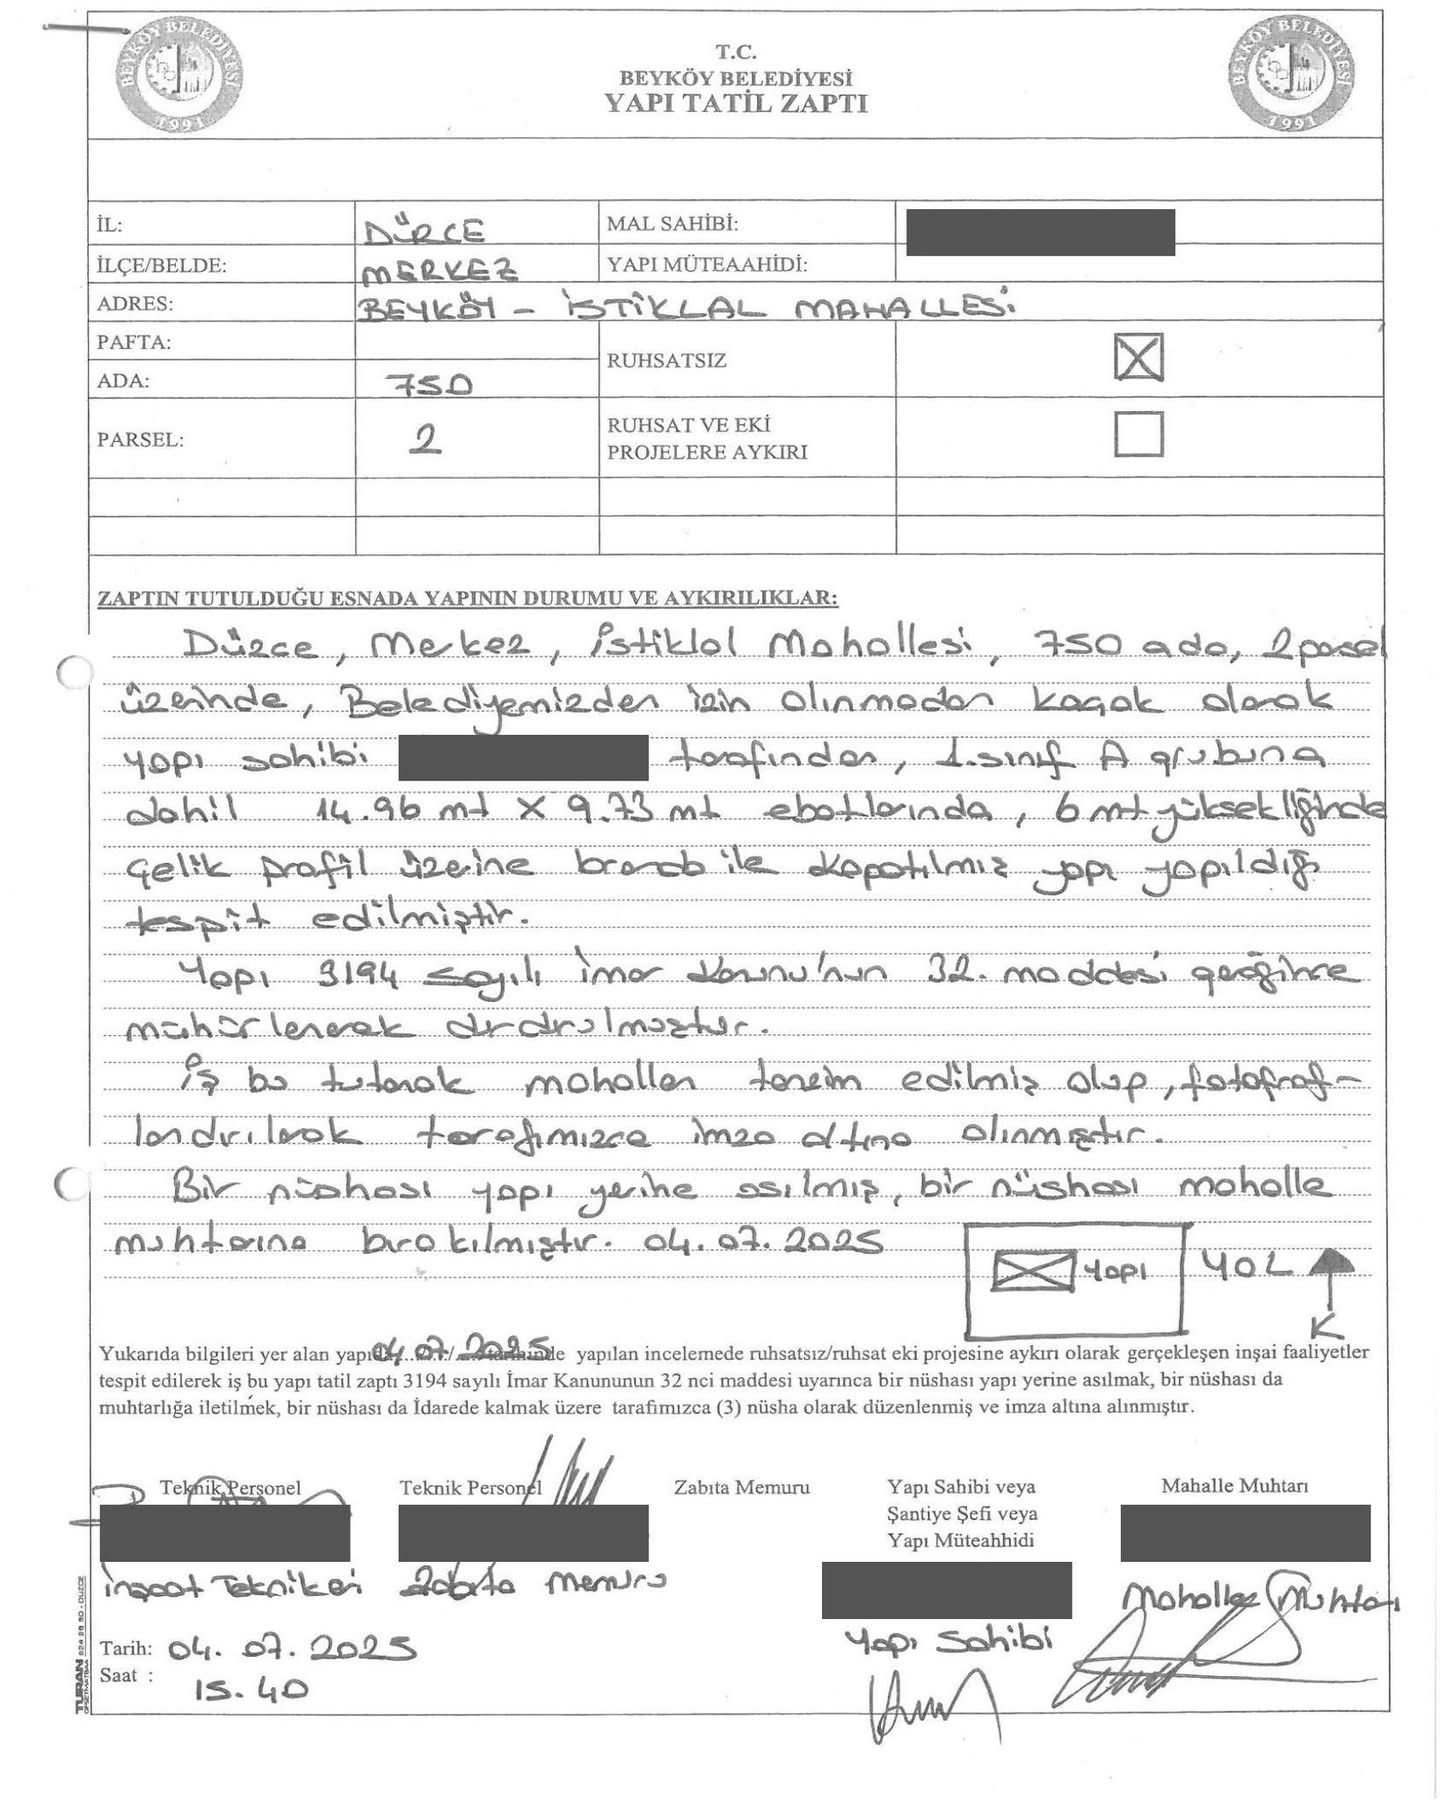 BEYKÖY BELEDİYESİ
1991
T.C.
BEYKÖY BELEDİYESİ
YAPI TATİL ZAPTI
BEYKÖY BELEDİYESİ
1991
İL: DÜZCE MAL SAHİBİ:
İLÇE/BELDE: MERKEZ YAPI MÜTEAAHİDİ:
ADRES: BEYKÖY - İSTİKLAL MAHALLESİ
PAFTA:
RUHSATSIZ
ADA: 750
PARSEL: 2 RUHSAT VE EKİ
PROJELERE AYKIRI
ZAPTIN TUTULDUĞU ESNADA YAPININ DURUMU VE AYKIRILIKLAR:
Düzce, Merkez, İstiklal Mahallesi, 750 ada, 2 parsel
üzerinde, Belediyemizden izin alınmadan kaçak olarak
yapı sahibi tarafından, 1.sınıf A grubuna
dahil 14.96 mt X 9.73 mt ebatlarında, 6 mt yüksekliğinde
çelik profil üzerine branda ile kapatılmış yapı yapıldığı
tespit edilmiştir.
Yapı 3194 sayılı İmar Kanunu'nun 32. maddesi gereğince
mühürlenerek durdurulmuştur.
İş bu tutanak mahallen tanzim edilmiş olup, fotoğraf-
landırılarak tarafımızca imza altına alınmıştır.
Bir nüshası yapı yerine asılmış, bir nüshası mahalle
muhtarına bırakılmıştır. 04.07.2025
Yapı YOL
K
Yukarıda bilgileri yer alan yapıda 04.07.2025 tarihinde yapılan incelemede ruhsatsız/ruhsat eki projesine aykırı olarak gerçekleşen inşai faaliyetler
tespit edilerek iş bu yapı tatil zaptı 3194 sayılı İmar Kanununun 32 nci maddesi uyarınca bir nüshası yapı yerine asılmak, bir nüshası da
muhtarlığa iletilmek, bir nüshası da İdarede kalmak üzere tarafımızca (3) nüsha olarak düzenlenmiş ve imza altına alınmıştır.
Teknik Personel Teknik Personel Zabıta Memuru Yapı Sahibi veya Mahalle Muhtarı
Şantiye Şefi veya
Yapı Müteahhidi
İnşaat Teknikeri Zabıta Memuru Mahalle Muhtarı
Yapı Sahibi
Tarih: 04.07.2025
Saat : 15.40
TURAN